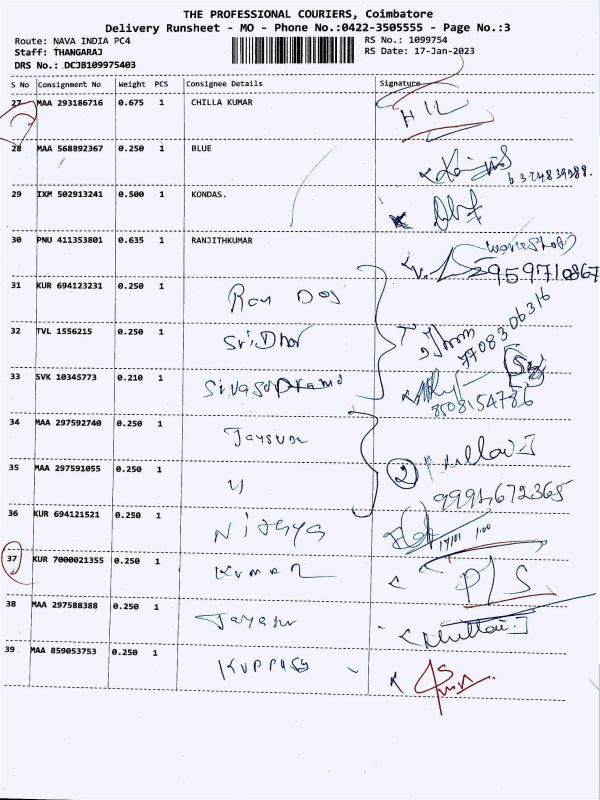 THE PROFESSIONAL COURIERS, Coimbatore
Delivery Runsheet - MO - Phone No.:0422-3505555 - Page No.:3
Route: NAVA INDIA PC4 RS No.: 1099754
Staff: THANGARAJ RS Date: 17-Jan-2023
DRS No.: DCJB109975403
S No Consignment No Weight PCS Consignee Details Signature
27 MAA 293186716 0.675 1 CHILLA KUMAR
28 MAA 568892367 0.250 1 BLUE
29 IXM 502913241 0.500 1 KONDAS.
30 PNU 411353801 0.635 1 RANJITHKUMAR
31 KUR 694123231 0.250 1 Ram Das
32 TVL 1556215 0.250 1 SriDhar
33 SVK 10345773 0.210 1
8508154786
34 MAA 297592740 0.250 1
35 MAA 297591055 0.250 1 2
36 KUR 694121521 0.250 1 Nithya
37 KUR 7000021355 0.250 1 Kumar P/S
38 MAA 297588388 0.250 1
39 MAA 859053753 0.250 1